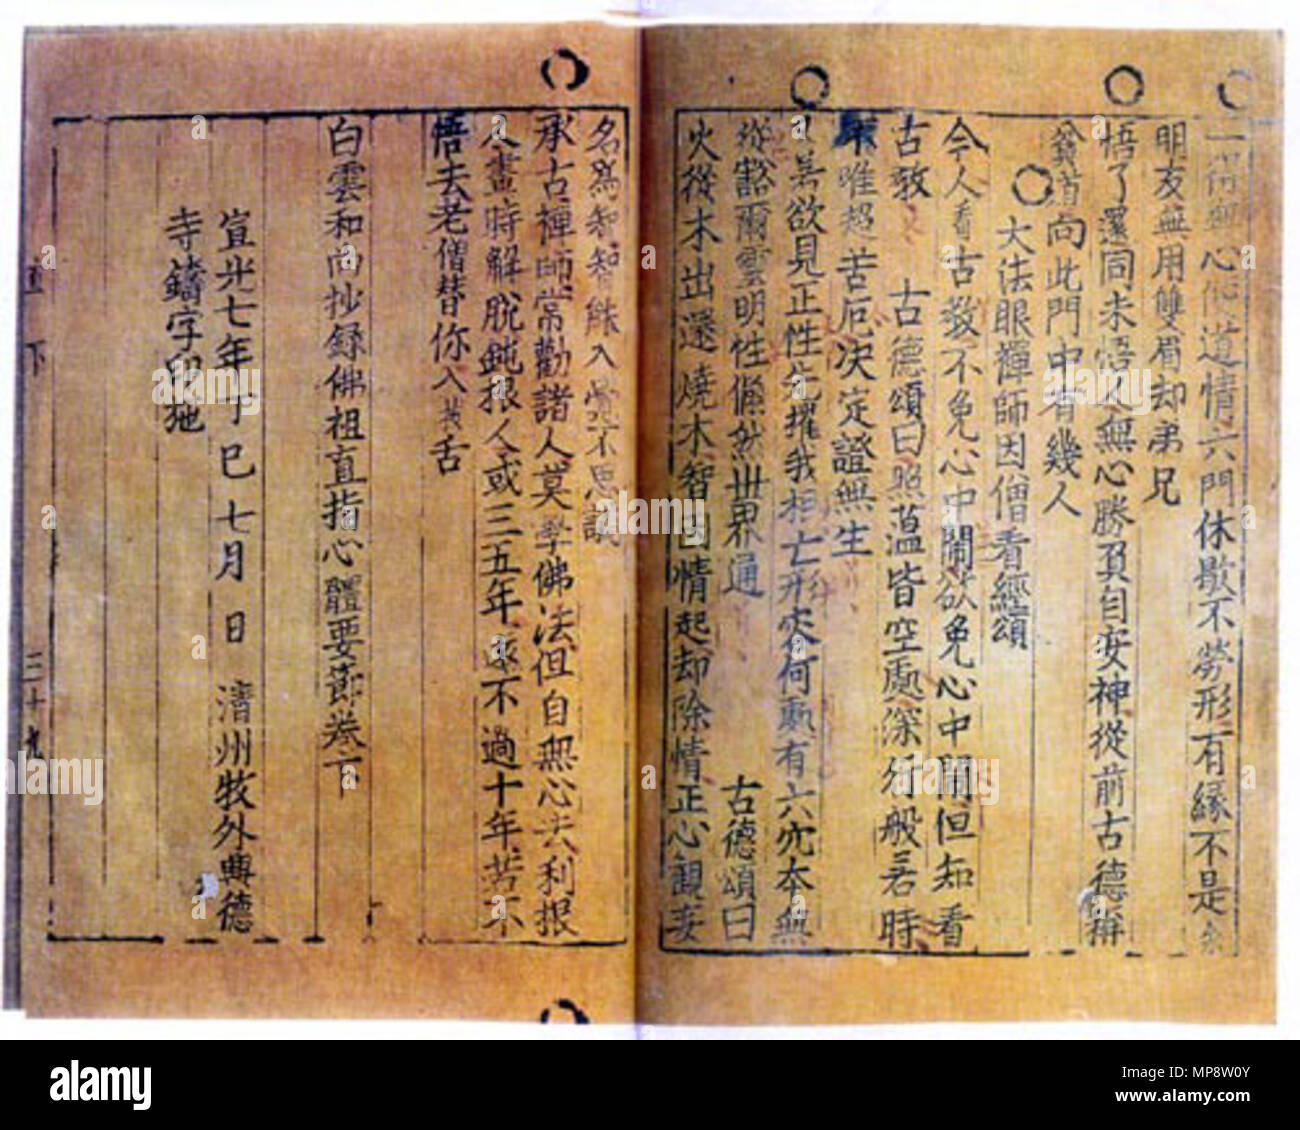 一得無心便道情六門休歇不勞形有緣不是余
朋友無用雙眉却弟兄
悟了還同未悟人無心勝負自安神從前古德稱
貧道向此門中有幾人
大法眼禪師因僧看經頌
今人看古教不免心中鬧欲免心中鬧但知看
古教 古德頌曰照蘊皆空處深行般若時
唯超苦厄決定證無生
善欲見正性先摧我相亡形安何更有六穴本無
從豁爾雲明性倏然世界通 古德頌曰
火從木出還燒木智因情起却除情正心觀妄
名爲智智能入 不思議
承古禪師常勸諸人莫學佛法但自無心去利根
人晝時解脫鈍根人或三五年遠不過十年若不
悟去老僧替你入 舌
白雲和尙抄錄佛祖直指心體要節卷下
宣光七年丁巳七月 日 淸州牧外興德
寺鑄字印施
直下
三十九
alamy
Image ID: MP8W0Y
www.alamy.com